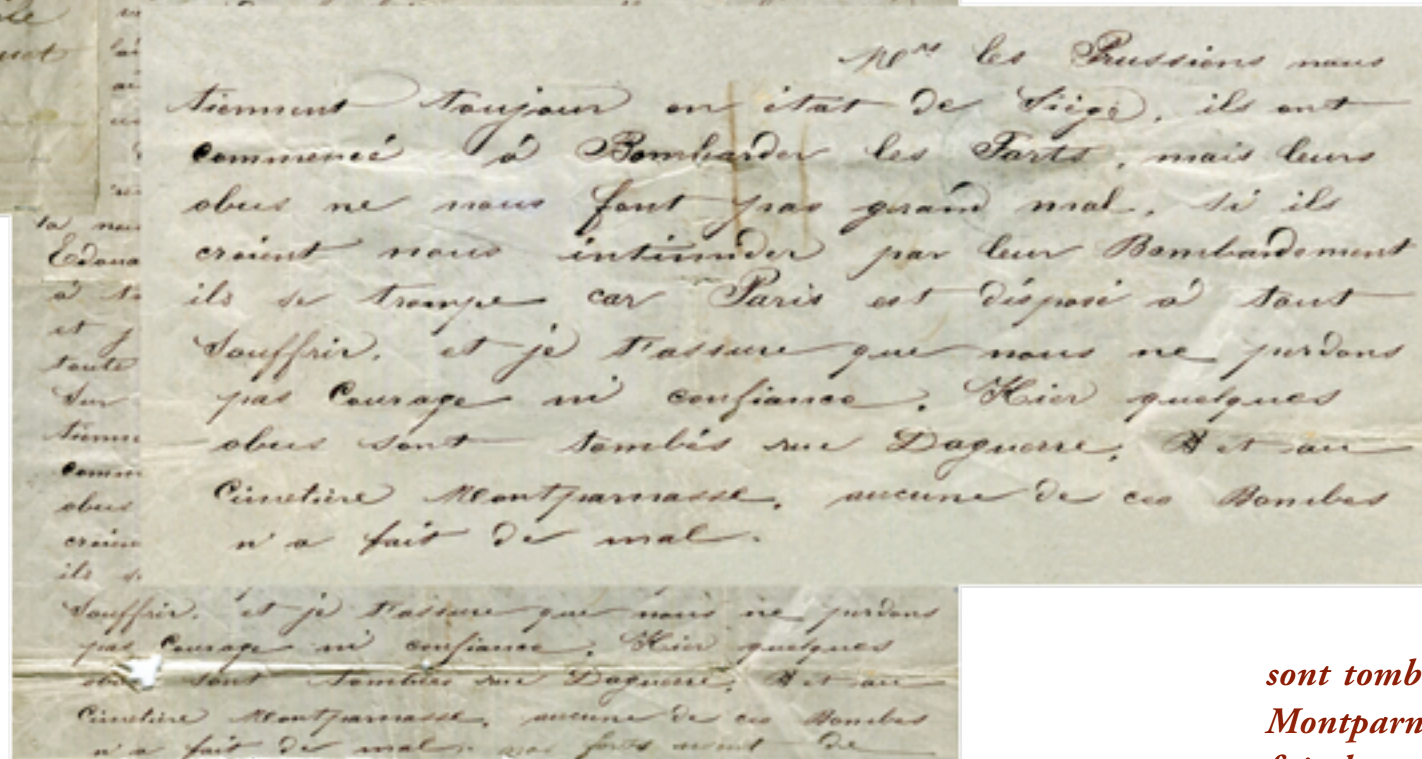 Mrs les Prussiens nous
tiennent toujour en état de Siège, ils ont
commencé à Bombarder les Forts, mais leurs
obus ne nous font pas grand mal, si ils
croient nous intimider par leur Bombardement
ils se trompe car Paris est disposé à tout
Souffrir, et je t'assure que nous ne perdons
pas Courage ni confiance. Hier quelques
obus sont tombés rue Daguerre, et au
Cimetière Montparnasse, aucune de ces Bombes
n'a fait de mal.
Edoua
à
et j
toute
Sur
tienne
comm
obus
croien
ils s
Souffrir, et je t'assure que nous ne perdons
pas Courage ni confiance. Hier quelques
sont tombées rue Daguerre, et au
Cimetière Montparnasse, aucune de ces Bombes
n'a fait de mal. nos forts de
sont tomb
Montparn